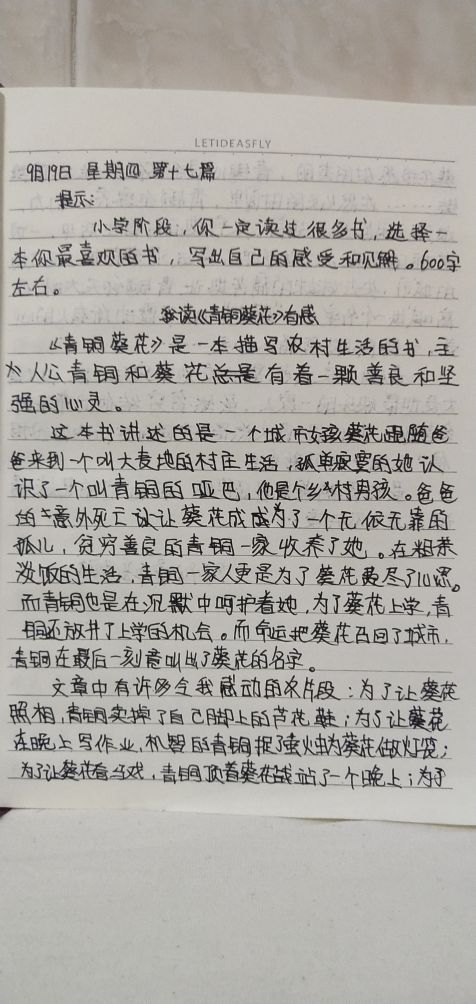 LETIDEASFLY
9月19日 星期四 第十七篇
提示:
小学阶段,你一定读过很多书,选择一
本你最喜欢的书,写出自己的感受和见解。600字
左右。
我读《青铜葵花》有感
《青铜葵花》是一本描写农村生活的书,主
人公青铜和葵花总是有着一颗善良和坚
强的心灵。
这本书讲述的是一个城市女孩葵花跟随爸
爸来到一个叫大麦地的村庄生活,孤单寂寞的她认
识了一个叫青铜的哑巴,他是个乡村男孩。爸爸
的意外死亡让葵花成为了一个无依无靠的
孤儿,贫穷善良的青铜一家收养了她。在粗茶
淡饭的生活,青铜一家人更是为了葵花费尽了心思。
而青铜也是在沉默中呵护着她,为了葵花上学,青
铜还放弃了上学的机会。而命运把葵花召回了城市,
青铜在最后一刻竟叫出了葵花的名字。
文章中有许多令我感动的片段:为了让葵花
照相,青铜卖掉了自己脚上的芦花鞋;为了让葵花
在晚上写作业,机智的青铜捉了萤火虫为葵花做灯笼;
为了让葵花看马戏,青铜顶着葵花站了一个晚上;为了